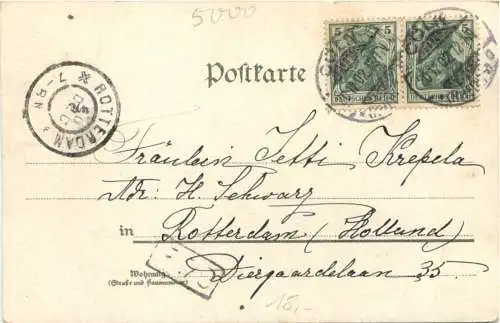 5000
Postkarte
5 5
DEUTSCHES REICH
ROTTERDAM
7-8N
Fräulein Jetti Krepela
Adr: H. Schwarz
in Rotterdam (Holland)
Diergaardelaan 35.
Wohnung
(Straße und Hausnummer)
15,-